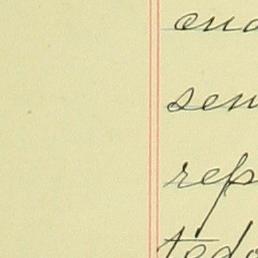 and
sen
rep
tedo